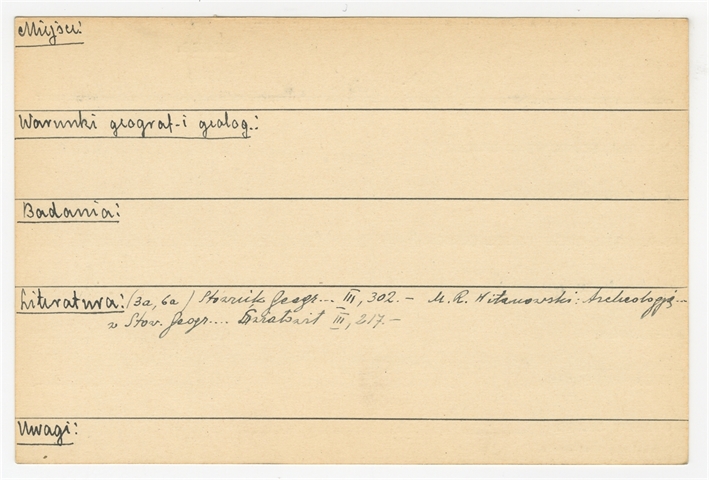 Miejsc:
Warunki geograf. i geolog.:
Badania:
Literatura: (3a, 6a) Słownik Geogr... III, 302.- M. R. Witanowski: Archeologja...
w Słow. Geogr.... Światowit III, 217.-
Uwagi: